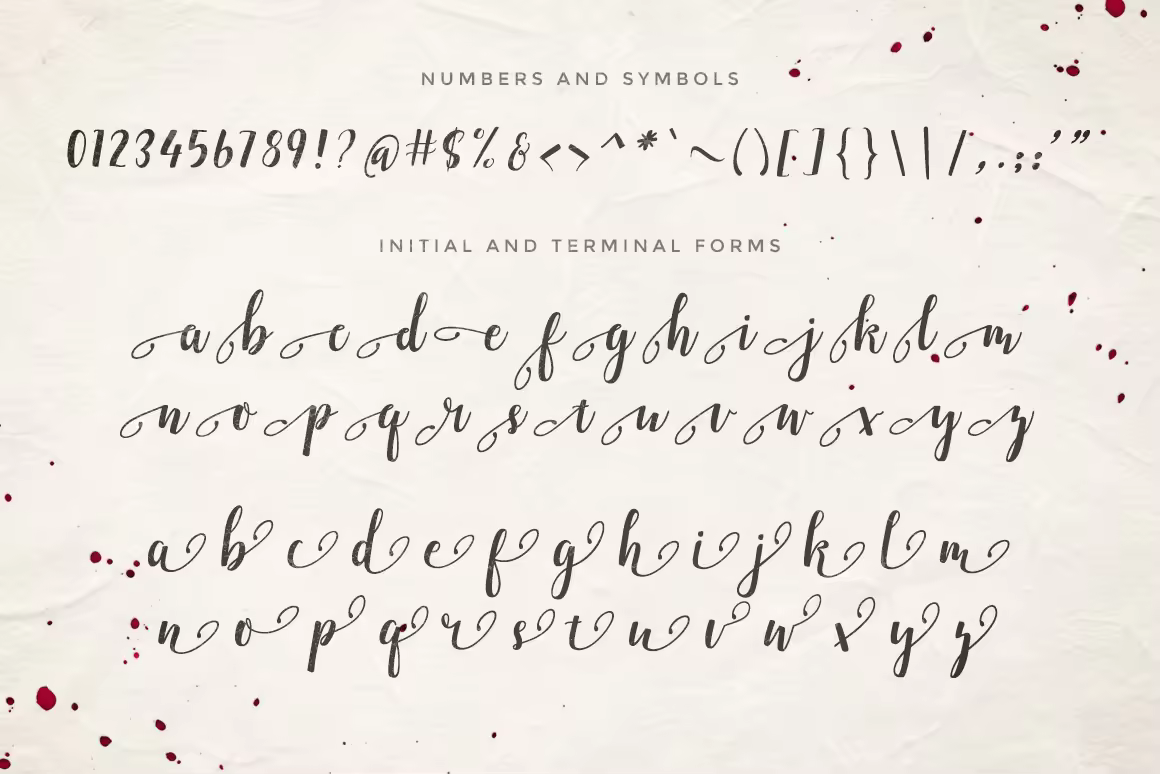 NUMBERS AND SYMBOLS
0123456789!?@#$%&<>^*`~()[]{}\|/,.;:’”
INITIAL AND TERMINAL FORMS
a b c d e f g h i j k l m
n o p q r s t u v w x y z
a b c d e f g h i j k l m
n o p q r s t u v w x y z